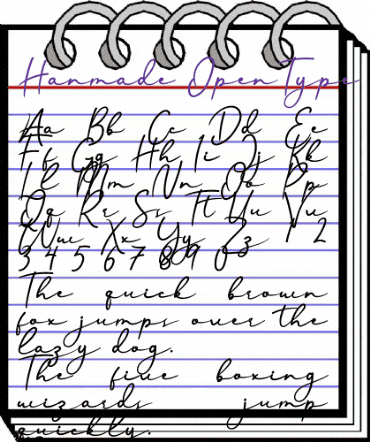 Hanmade OpenType
Aa Bb Cc Dd Ee
Ff Gg Hh Ii Jj Kk
Ll Mm Nn Oo Pp
Qq Rr Ss Tt Uu Vv
Ww Xx Yy Zz 1 2
3 4 5 6 7 8 9 0
The quick brown
fox jumps over the
lazy dog.
The five boxing
wizards jump
quickly.